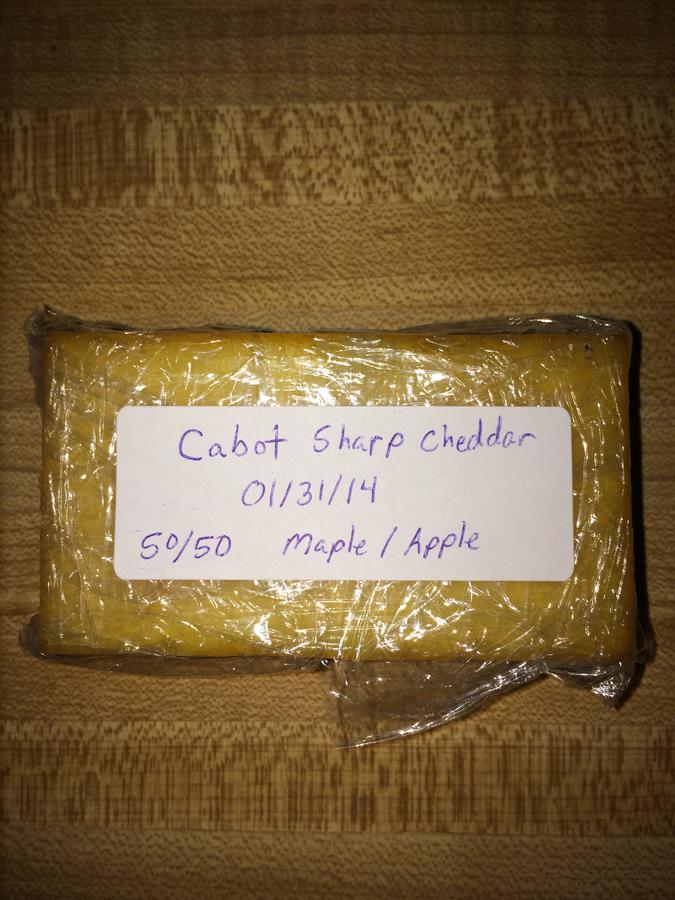 Cabot Sharp Cheddar
01/31/14
50/50 Maple / Apple